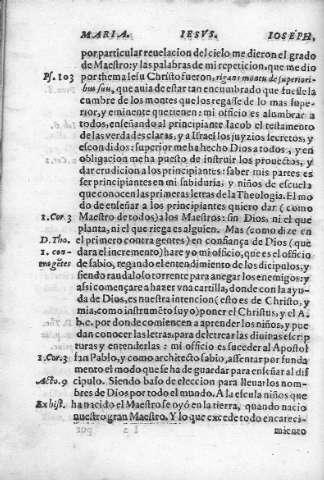 MARIA. IESVS. IOSEPH,
por particular reuelacion del cielo me dieron el grado
de Maestro: y las palabras de mi repeticion, que me dio
Ps. 103 por thema Iesu Christo fueron, rigans montes de superiori-
bus suis, que auia de estar tan encumbrado que fuesse la
cumbre de los montes que los regasse de lo mas supe-
rior, y eminente que tienen: mi officio es alumbrar a
todos, enseñando al principiante Iacob el testamento
de las verdades claras, y a Israel los juyzios secretos, y
escondidos: superior me ha hecho Dios a todos, y en
obligacion me ha puesto de instruir los prouectos, y
dar erudicion a los principiantes: saber mis partes es
ser principiantes en mi sabiduria, y niños de escuela
que conocen las primeras letras de la Theologia. El mo
do de enseñar a los principiantes quiero dar (como
1. Cor. 3 Maestro de todos) a los Maestros: sin Dios, ni el que
planta, ni el que riega es alguien. Mas (como dize en
D. Tho. el primero contra gentes) en confiança de Dios (que
1. con- dara el incremento) hare yo mi officio, que es el officio
de sabio, regando el entendimiento de los dicipulos, y
siendo raudal o torrente para anegar los enemigos: y
assi começare a hazer vna cartilla, donde con la ayu-
da de Dios, es nuestra intencion (esto es de Christo, y
mia, como instrumẽto suyo) poner el Christus, y el A.
b. c. por donde comiencen a aprender los niños, y pue
dan conocer las letras, para deletrear las diuinas escrip
turas y entenderlas: mi officio es suceder al Apostol
1. Cor. 3 san Pablo, y como architecto sabio, assentar por funda
mento el modo que se ha de guardar para enseñar al dis
Acto. 9 cipulo. Siendo baso de eleccion para lleuar los nom-
bres de Dios por todo el mundo. A la escuela niños que
Ex hist. ha nacido el Maestro se oyó en la tierra, quando nacio
nuestro gran Maestro. Y lo que excede todo encareci-
miento